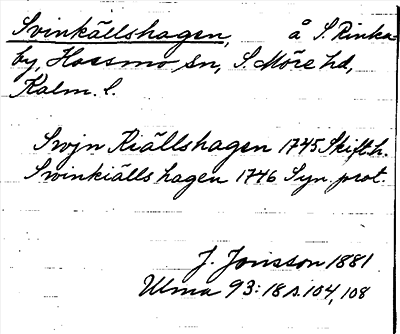 Svinkällshagen, å S. Rinka-
by, Hossmo sn, S. Möre hd,
Kalm. l.
Swjn Kiällshagen 1745 Skifth.
Swinkiälls hagen 1746 Syn. prot.
J. Jonsson 1881
Ulma 93:18 s. 104, 108